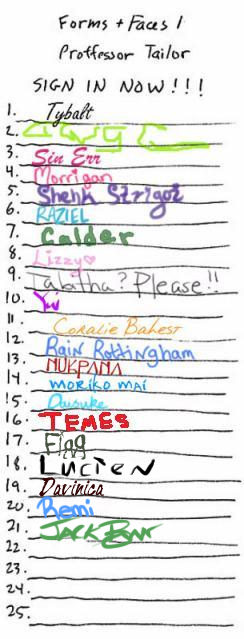 Forms + Faces 1
Proffessor Tailor
SIGN IN NOW!!!
1. Tybalt
2.
3. Sin Err
4. Morrigan
5. Shehk Strigoi
6. RAZIEL
7. Calder
8. Lizzy♡
9. Tabitha? Please!!
10.
11. Coralie Bahest
12. Rain Rottingham
13. NUKPANA
14. moriko mai
15. Daisuke
16. TEMES
17. Figg
18. Lucien
19. Davinica
20. Remi
21. JACK
22.
23.
24.
25.